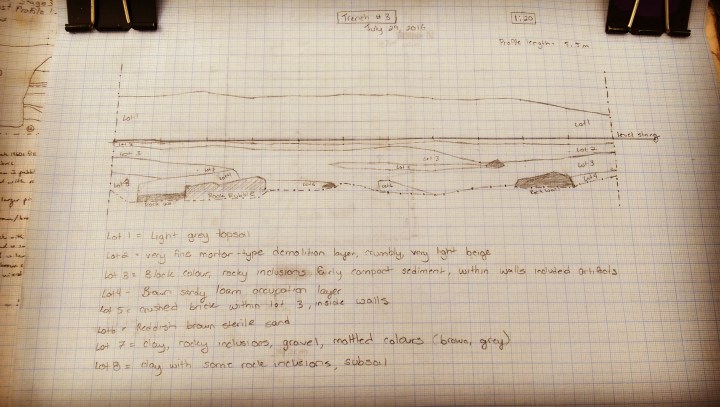 Trench #3
July 29, 2016
1:20
Profile length - 5.5m
Lot 1
Lot 1
level string
Lot 2
Lot 2
Lot 3
Lot 3
Lot 1 = Light grey topsoil
Lot 2 - very fine mortar-type demolition layer, crumbly, very light beige
Lot 3 = Black colour, rocky inclusions fairly compact sediment, within walls included artifacts
Lot 4 - Brown sandy loam occupation layer
Lot 5 = crushed brick within lot 3, inside walls
Lot 6 = Reddish brown sterile sand
Lot 7 = clay, rocky inclusions, gravel, mottled colours (brown, grey)
Lot 8 = clay with some rock inclusions, subsoil